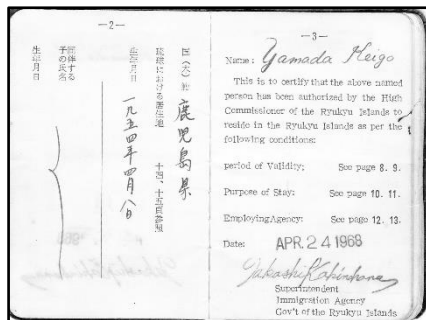 —2—
国(本)籍 鹿児島県
琉球における居住地 十四、十五頁参照
生年月日 一九五四年四月八日
同伴する
子の氏名
生年月日
—3—
Name: Yamada Keigo
This is to certify that the above named
person has been authorized by the High
Commissioner of the Ryukyu Islands to
reside in the Ryukyu Islands as per the
following conditions:
period of Validity: See page 8. 9.
Purpose of Stay: See page 10. 11.
Employing Agency: See page 12. 13.
Date: APR 24 1968
Superintendent
Immigration Agency
Gov't of the Ryukyu Islands